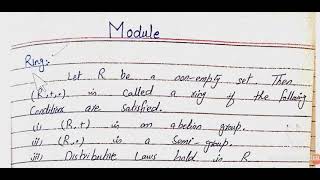 Module
Ring:-
Let R be a non-empty set. Then
(R,+,.) is called a ring if the following
Conditions are satisfied.
(i) (R,+) is an abelian group.
(ii) (R,.) is a Semi-group.
(iii) Distributive Laws hold in R